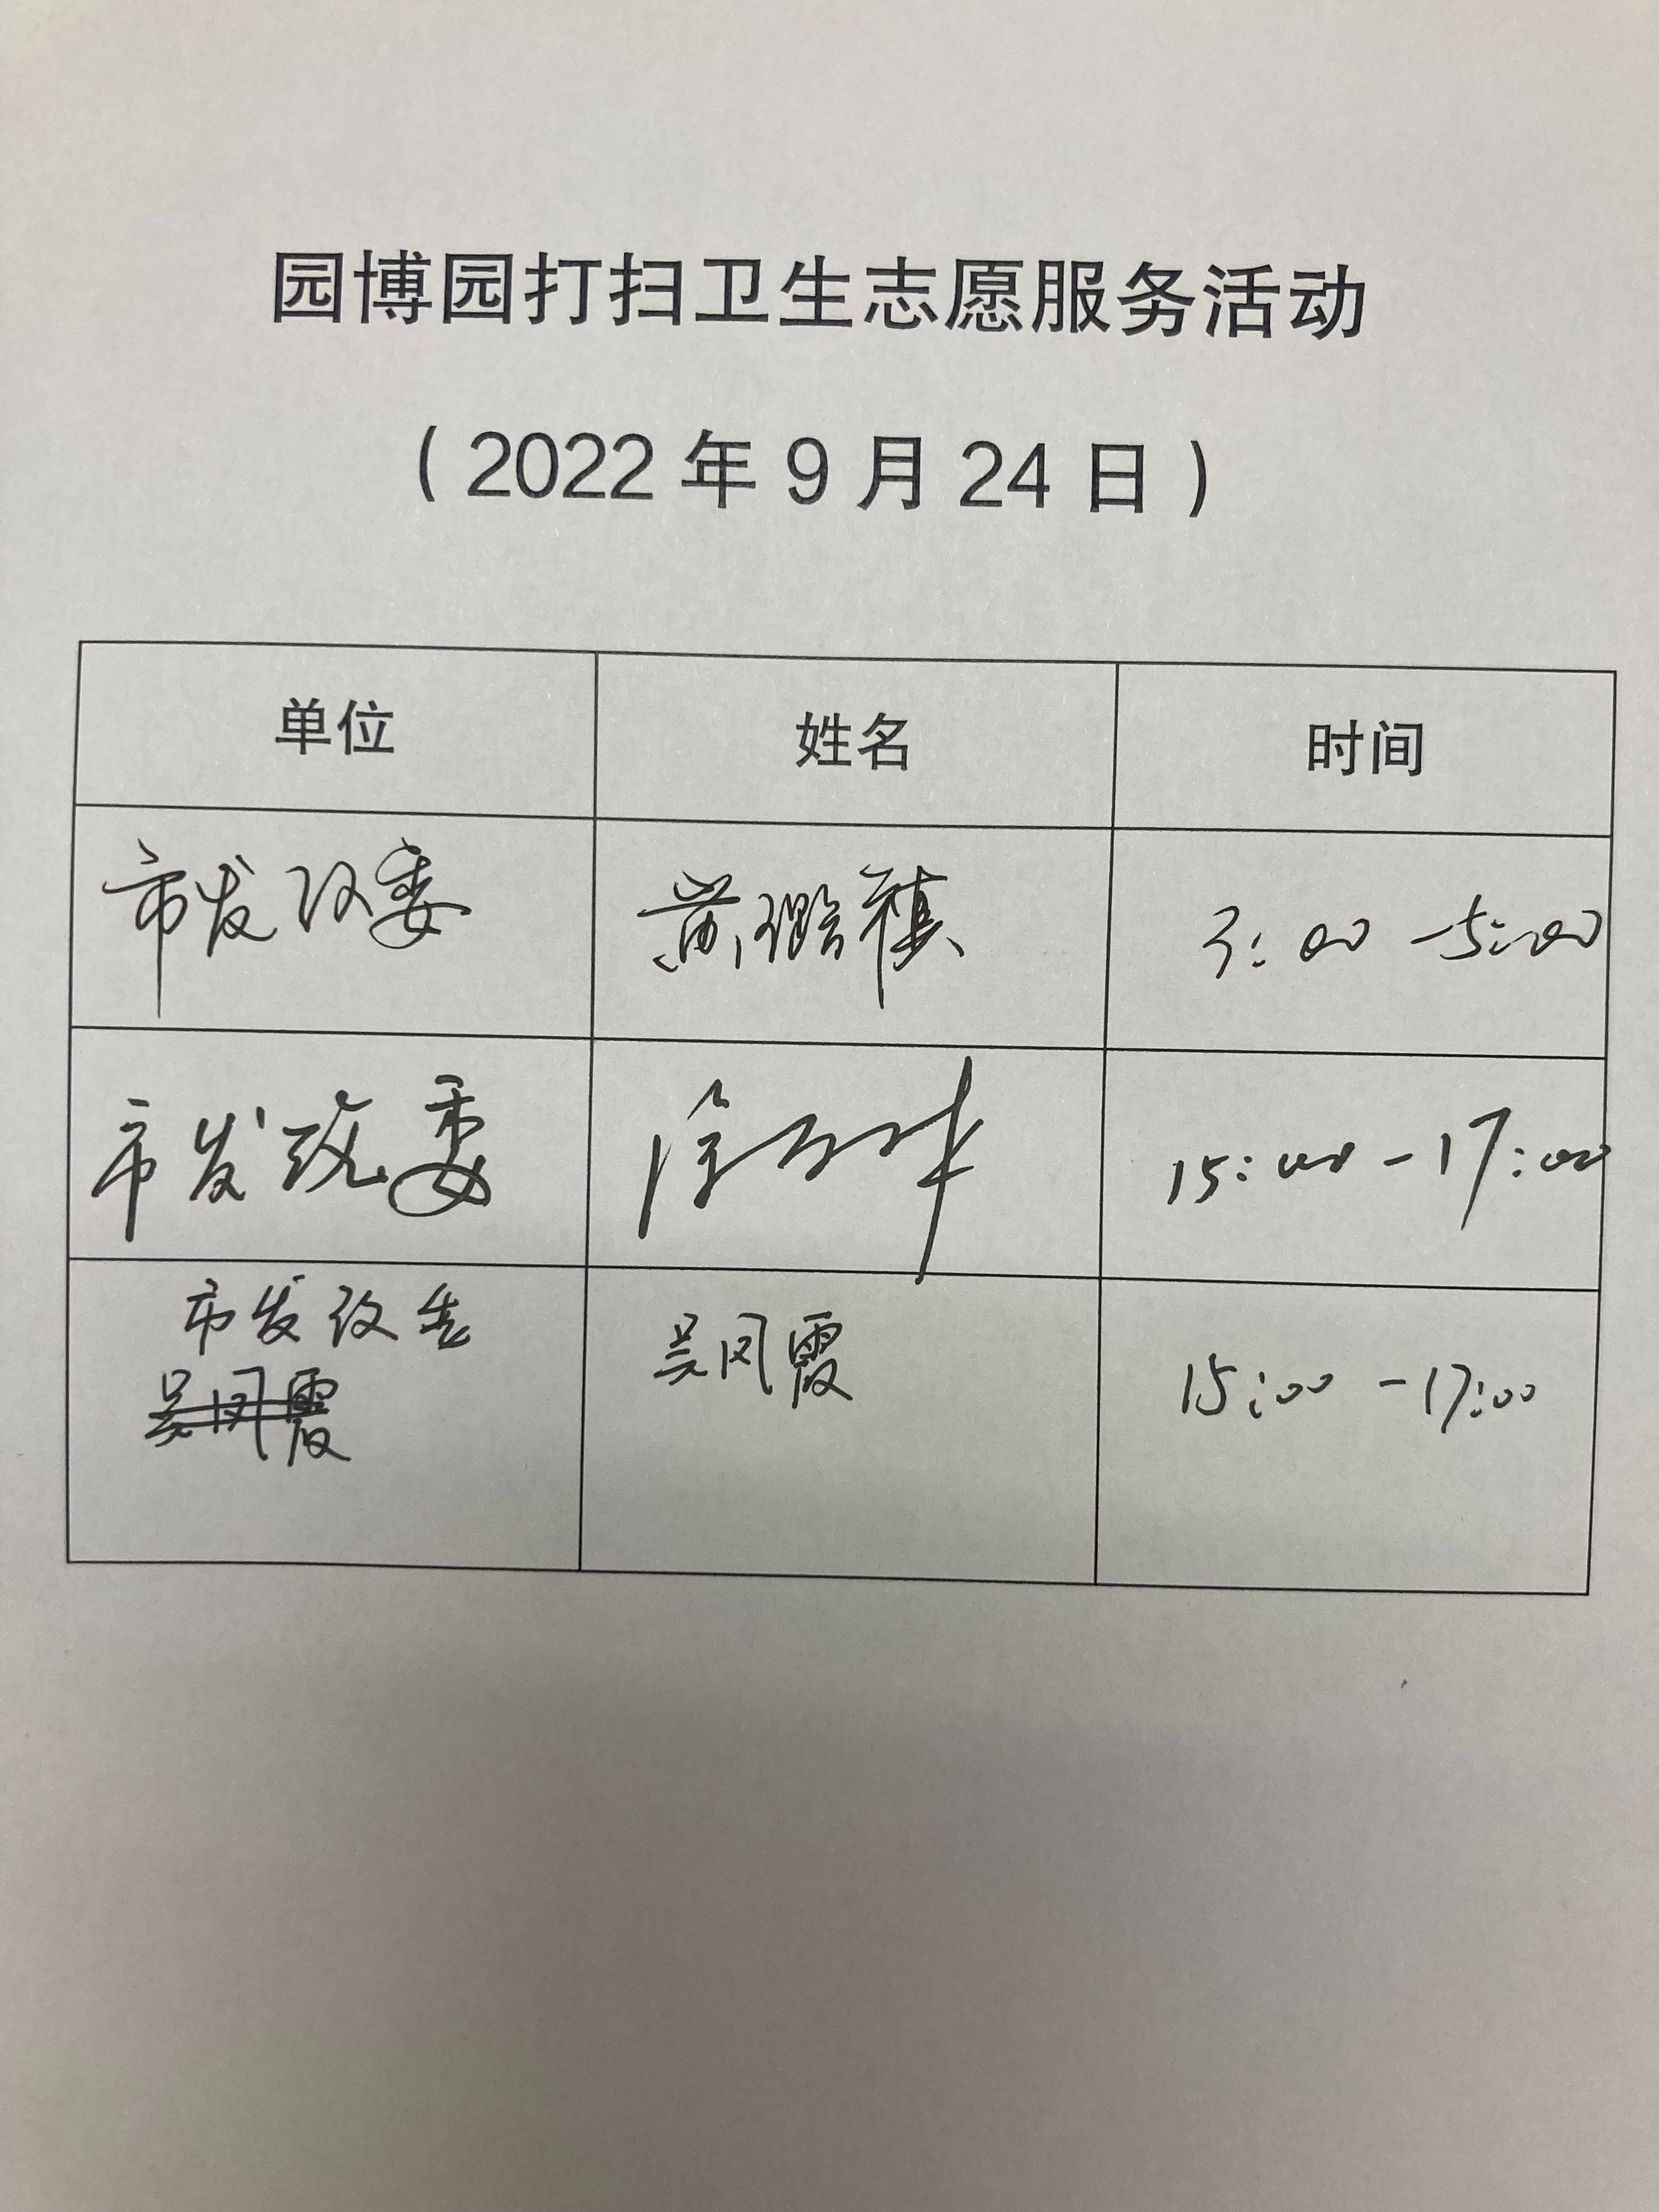 园博园打扫卫生志愿服务活动
(2022年9月24日)
单位 姓名 时间
市发改委 黄 3:00-5:00
市发改委 徐 15:00-17:00
市发改委 吴凤霞 15:00-17:00
吴凤霞